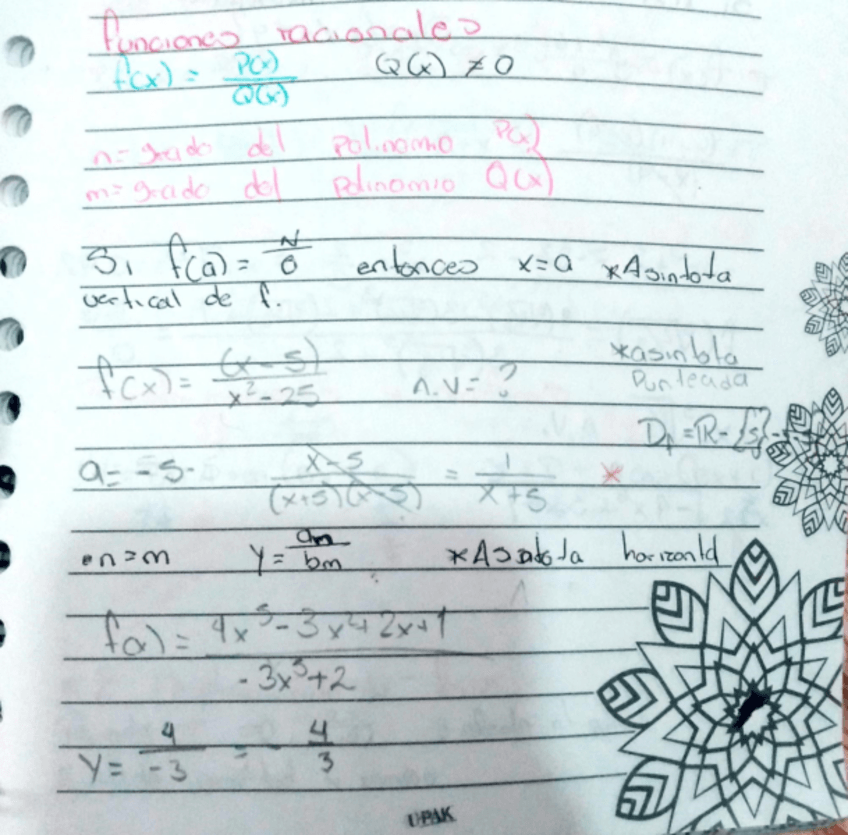 funciones racionales
f(x) = P(x)/Q(x) Q(x) ≠ 0
n= grado del polinomio P(x)
m= grado del polinomio Q(x)
Si f(a) = N/0 entonces x=a *Asintota
vertical de f.
*asintota
Punteada
f(x) = (x-5)/x²-25 A.V= ?
a= -5. x-5/(x+5)(x-5) = 1/x+5 *
• n=m Y= an/bm *Asintota horizontal
f(x) = 4x⁵-3x²+2x+1/-3x⁵+2
Y= 4/-3 = - 4/3
UPAK